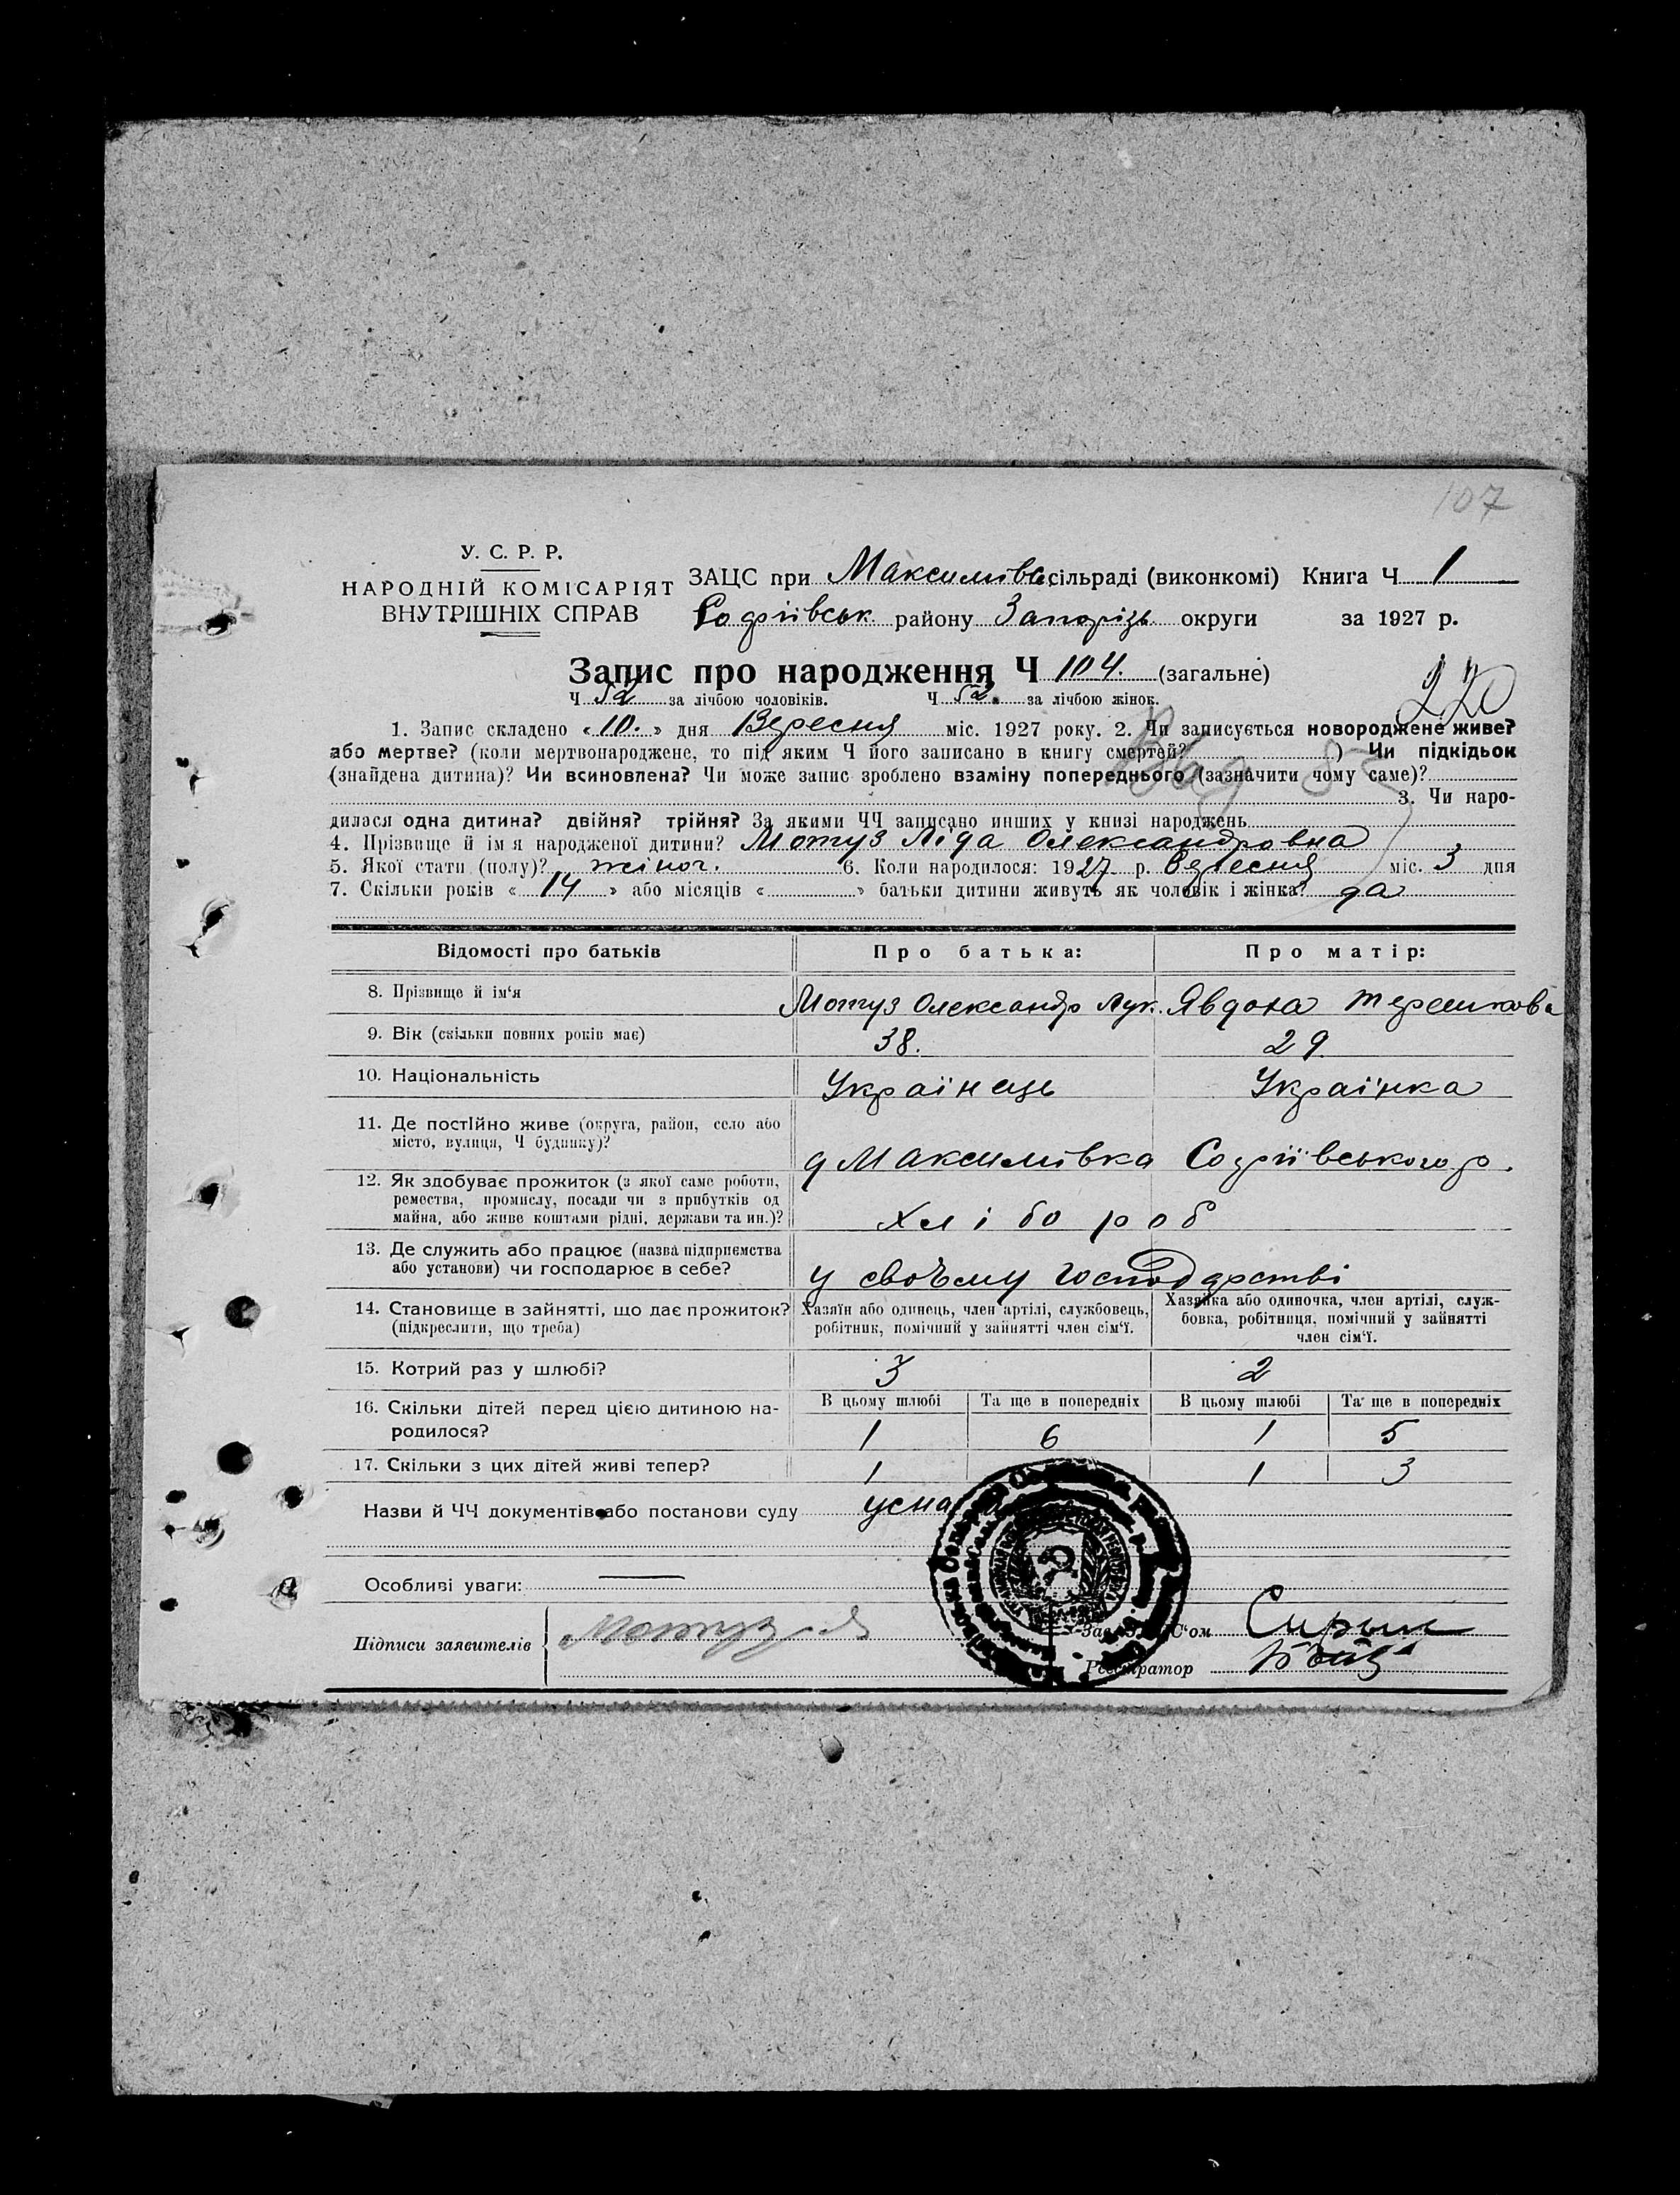 107
У. С. Р. Р.
НАРОДНІЙ КОМІСАРІЯТ
ВНУТРІШНІХ СПРАВ
ЗАЦС при Максимівс. сільраді (виконкомі) Книга Ч 1
Софіївськ. району Запорізь округи за 1927 р.
Запис про народження Ч 104. (загальне)
220
Ч 52 за лічбою чоловіків. Ч 52. за лічбою жінок.
1. Запис складено «10.» дня Вересня міс. 1927 року. 2. Чи записується новороджене живе?
або мертве? (коли мертвонароджене, то під яким Ч його записано в книгу смертей? ) Чи підкідьок
(знайдена дитина)? Чи всиновлена? Чи може запис зроблено взаміну попереднього (зазначити чому саме)?
3. Чи наро-
дилася одна дитина? двійня? трійня? За якими ЧЧ записано инших у книзі народжень
4. Прізвище й імя народженої дитини? Мотуз Ліда Олександровна
5. Якої стати (полу)? жіноч. 6. Коли народилося: 1927 р. Вересня міс. 3 дня
7. Скільки років «14» або місяців « » батьки дитини живуть як чоловік і жінка? да
Відомості про батьків Про батька: Про матір:
8. Прізвище й ім'я Мотуз Олександр Лук. Явдоха Терешкова
9. Вік (скільки повних років має) 38. 29.
10. Національність Українець Українка
11. Де постійно живе (округа, район, село або
місто, вулиця, Ч будинку)?
д Максимівка Софіівського р.
12. Як здобуває прожиток (з якої саме роботи,
ремества, промислу, посади чи з прибутків од
майна, або живе коштами рідні, держави та ин.)? Хлібороб
13. Де служить або працює (назва підприємства
або установи) чи господарює в себе? у своъму господарстві
14. Становище в зайнятті, що дає прожиток? Хазяїн або одинець, член артілі, службовець, Хазяйка або одиночка, член артілі, служ-
(підкреслити, що треба) робітник, помічний у зайнятті член сім'ї. бовка, робітниця, помічний у зайнятті
член сім'ї.
15. Котрий раз у шлюбі? 3 2
16. Скільки дітей перед цією дитиною на- В цьому шлюбі Та ще в попередніх В цьому шлюбі Та ще в попередніх
родилося? 1 6 1 5
17. Скільки з цих дітей живі тепер? 1 1 3
Назви й ЧЧ документів або постанови суду усна
Особливі уваги: —
Підписи заявителів Мотуз
Зав. ЗАЦС'ом
Реєстратор